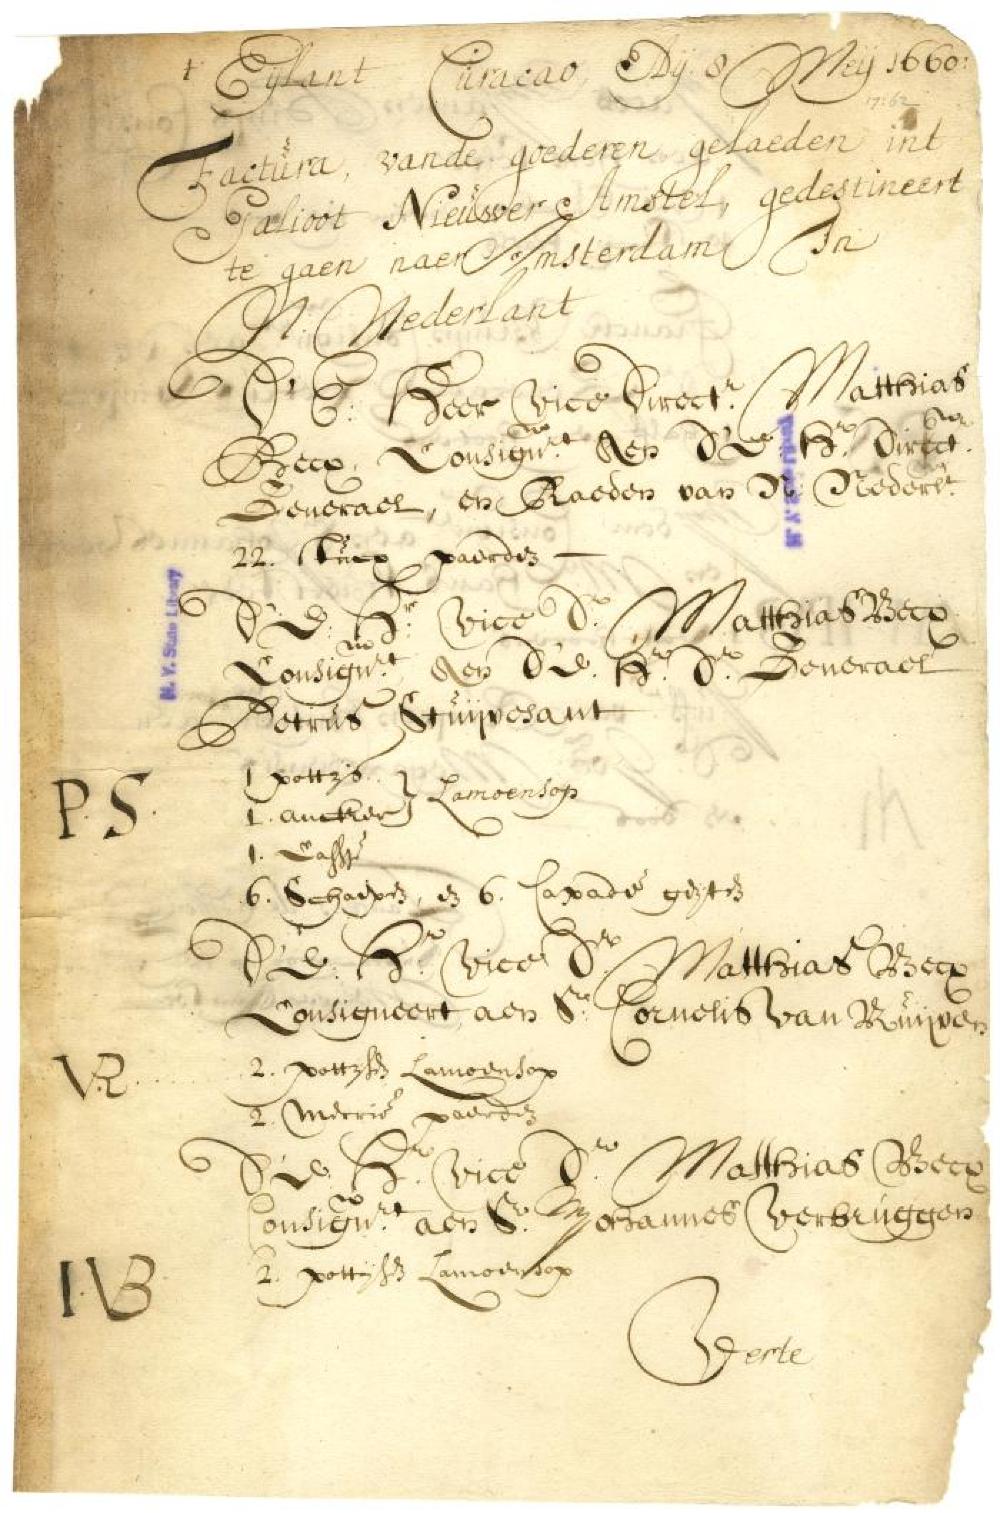 Eylant Curacao, Ady 8 Meij 1660:
17:62
Factúra, vande goederen gelaeden int
Galioot Nieúwer Amstel, gedestineert
te gaen naer Amsterdam In
N. Nederlant
D' E: Heer vice Directr. Matthias
Becx, Consignrt. Aen D'E Hr. Direct.
Generael, en Raeden van N. Nederlt.
22. stúcx paerden
N. Y. State Library
D'E. Hr. vice Dr. Matthias Becx
Consignrt. Aen D'E. Hr. Dr. Generael
N. Y. State Library
Petrús Stúijvesant
1 pottys.
1. ancker } Lamoensop
P. S.
1. Casse
6. Schaepen, en 6. Capade geyten
D'E. Hr. vice Dr. Matthias Becx
Consigneert aen Sr. Cornelis van Rúijven
VR 2. pottyses Lamoensop
2. Merrie paerden
D'E. Hr. vice Dr. Matthias Becx
Consignrt. aen Sr. Johannes Verbrúggen
IVB 2. pottyses Lamoensop
Verte